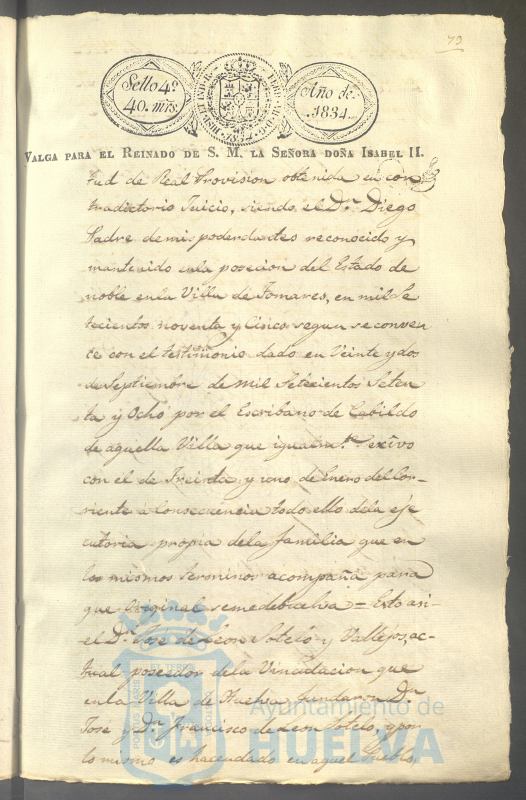 79
Sello 4º
40. mrs.
Año de
1834.
VALGA PARA EL REINADO DE S. M. LA SEÑORA DOÑA ISABEL II.
tud de Real Provision obtenida en con
tradictorio Juicio, siendo el Dn. Diego
Padre de mis poderdantes reconocido y
mantenido enla posecion del Estado de
noble enla Villa de Tomares, en mil Se
tecientos noventa y Cinco segun se conven
ce con el testimonio dado en Veinte y dos
de Septiembre de mil Setecientos Seten
ta y Ocho por el Escribano de Cabildo
de aquella Villa que igualmte. exivo
con el de Treinta y uno de Enero del Cor-
riente a Consecuencia todo ello dela eje
cutoria propia dela familia que en
los mismos terminos acompaña para
que Original semedebuelva = Esto asi
el Dn. Jose de Leon Sotelo y Vallejos, ac-
tual poseedor dela Vinculacion que
enla Villa de Huelva fundaron Dn
Jose y Dn. Francisco de Leon Sotelo, y por
lo mismo es hacendado en aquel Pueblo,
Ayuntamiento de
HUELVA